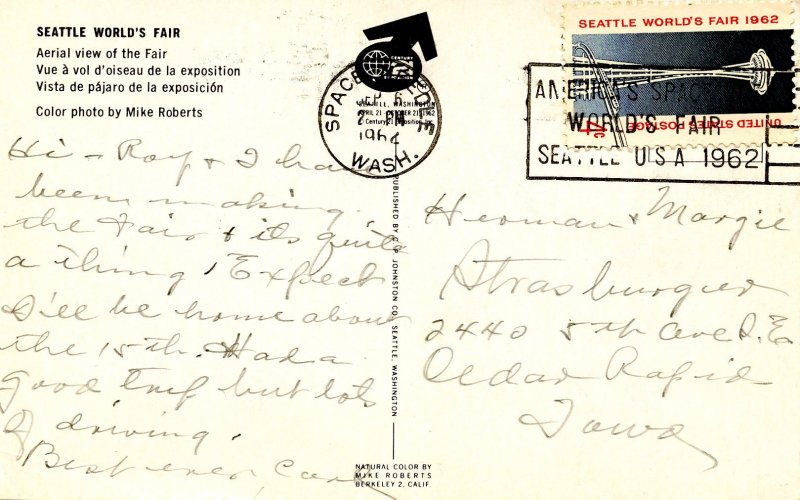 SEATTLE WORLD'S FAIR
Aerial view of the Fair
Vue à vol d'oiseau de la exposition
Vista de pájaro de la exposición
Color photo by Mike Roberts
Hi - Roy & I ha
been making
the Fair & its quite
a thing, Expect
I'll be home about
the 15th. Had a
good trip but lots
of driving.
Best ever,
CENTURY 21 EXPOSITION
SEATTLE, WASHINGTON
APRIL 21 - OCTOBER 21, 1962
© Century 21 Exposition, Inc.
SPACE
SEP 6
PM
1962
WASH.
SEATTLE WORLD'S FAIR 1962
4¢
UNITED STATES POSTAGE
AMERICA'S SPACE
WORLD'S FAIR
SEATTLE U S A 1962
PUBLISHED BY C. P. JOHNSTON CO. SEATTLE, WASHINGTON
Herman & Margie
Strasburger
2440 5th Ave S.E.
Cedar Rapid
Iowa
NATURAL COLOR BY
MIKE ROBERTS
BERKELEY 2, CALIF.